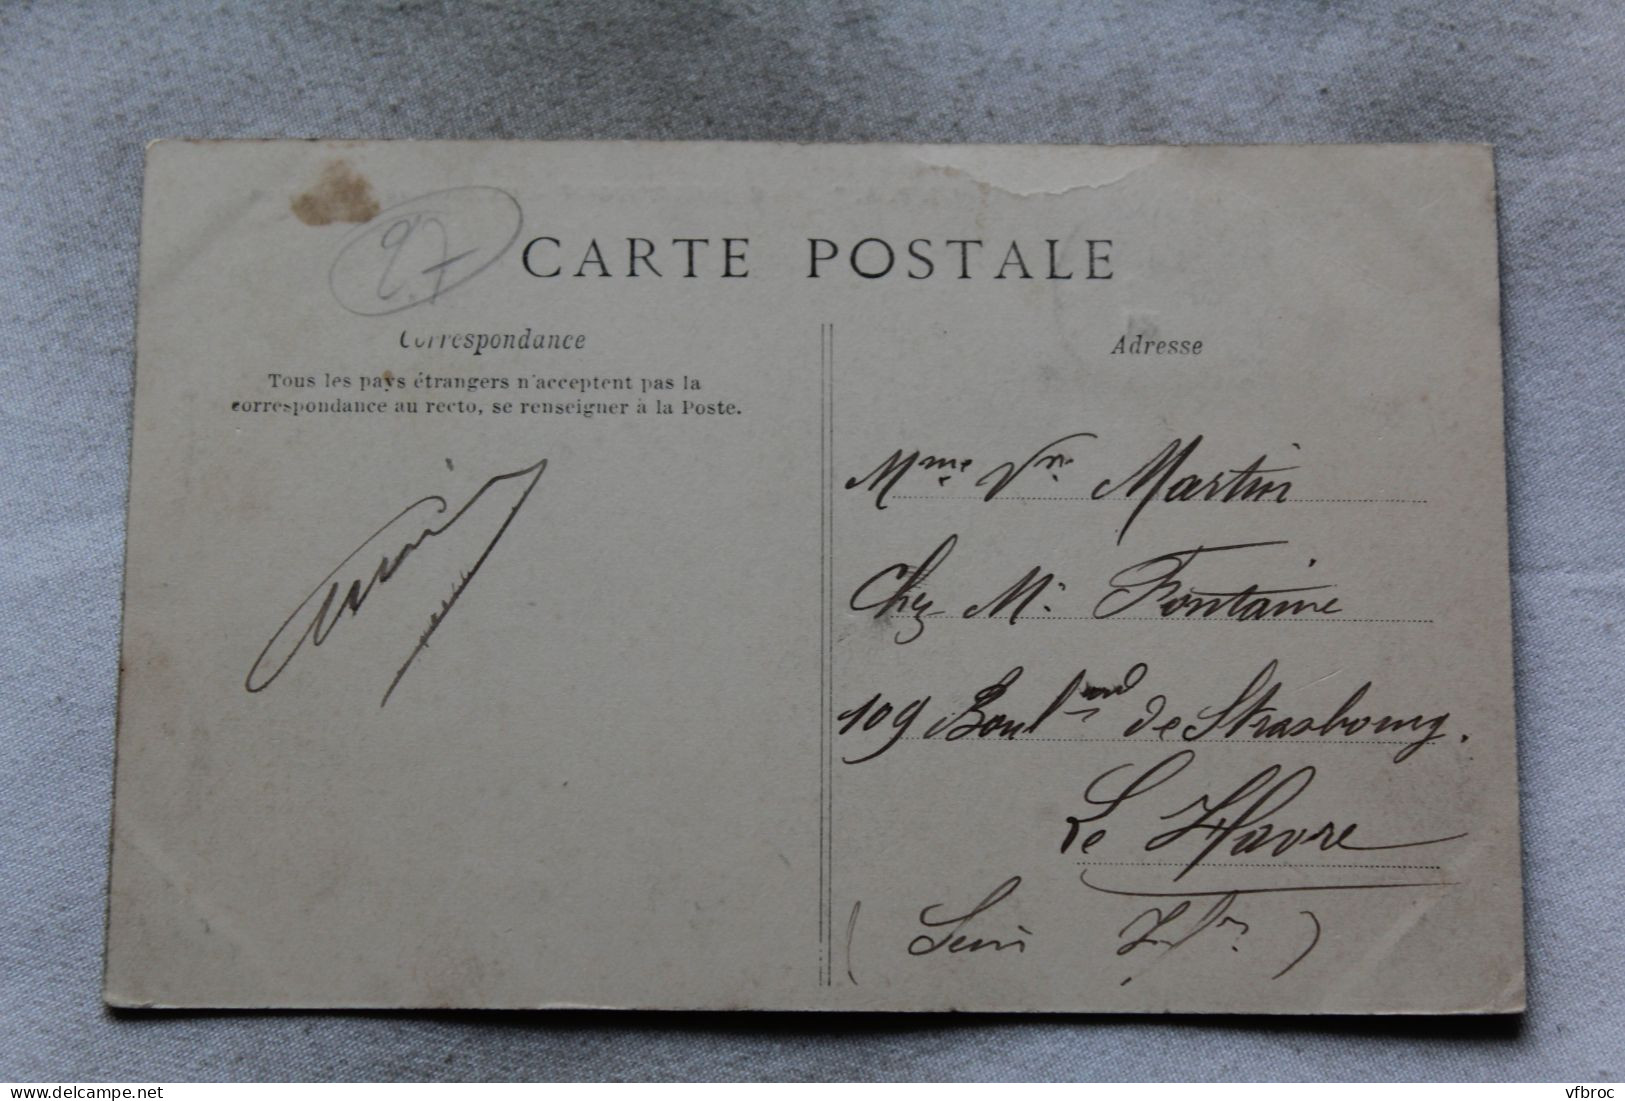 27
CARTE POSTALE
Correspondance
Tous les pays étrangers n'acceptent pas la
correspondance au recto, se renseigner à la Poste.
Adresse
Mme Vve Martin
Chez Mr Fontaine
109 Boulevard de Strasbourg.
Le Havre
(Seine Infre)
www.delcampe.net
vfbroc